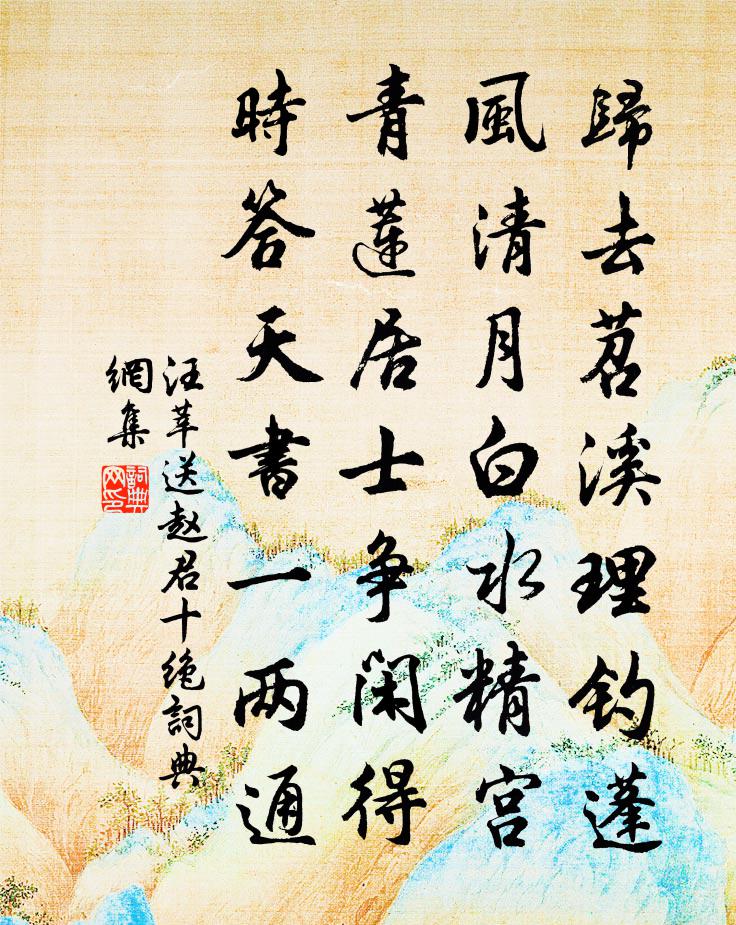 歸去苕溪理釣蓬
風清月白水精宮
青蓮居士争閑得
時答天書一兩通
汪莘送赵君十绝詞典
網集
詞典
网印